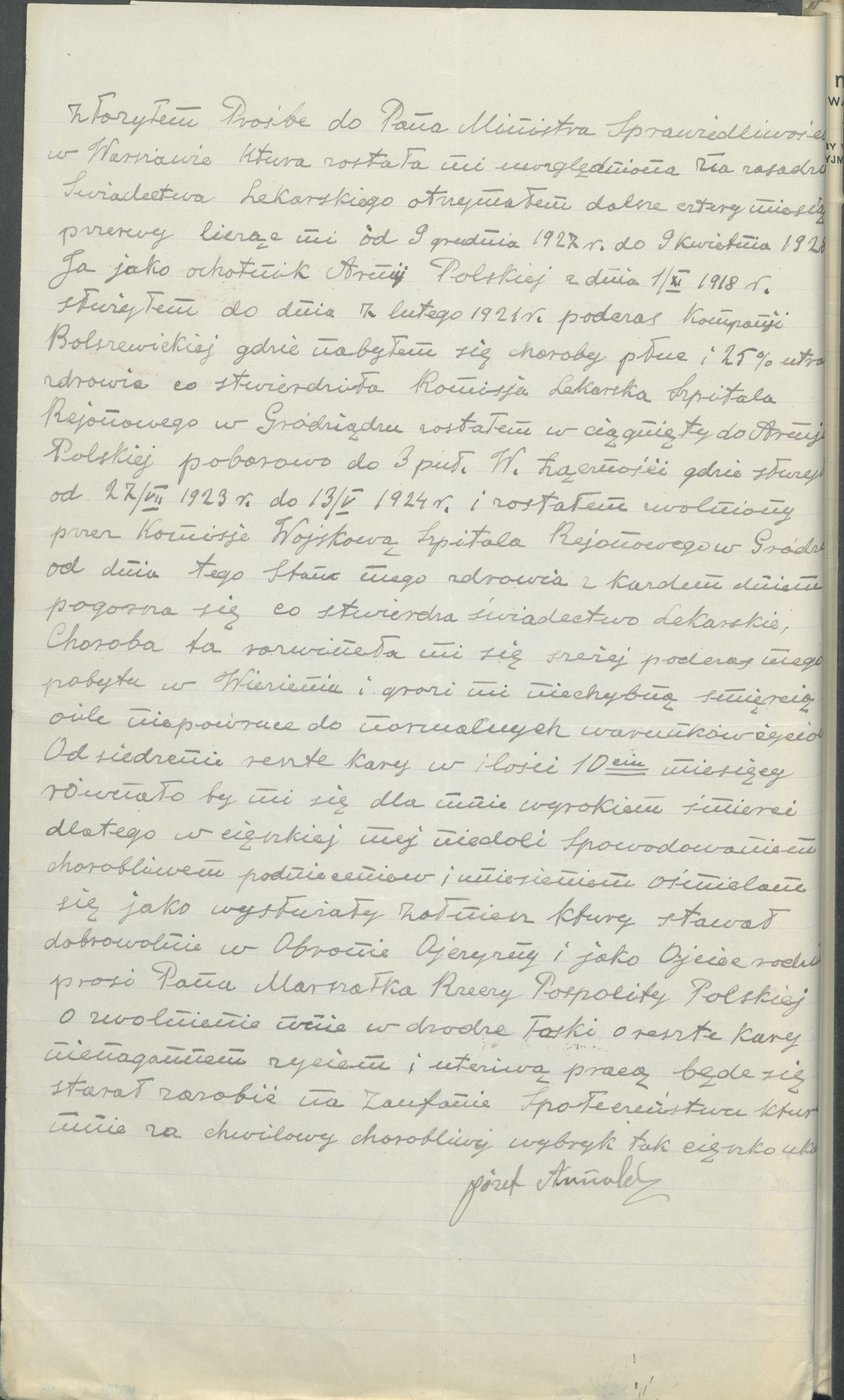 złorzyłem Prośbe do Pana Ministra Sprawiedliwośc
w Warszawie Ktura została mi uwzględniona na zasadzi
Swiadectwa Lekarskiego otrzymałem dalsze cztery miesią
przerwy licząc mi od 9 grudnia 1927 r. do 9 kwietnia 1928
Ja jako ochotnik Armji Polskiej z dnia 1/XI 1918 r.
służyłem do dnia 7 lutego 1921 r. poderas Kompanji
Bolszewickiej gdzie nabyłem się choroby płuc i 25% utra
zdrowia co stwierdziła Komisja Lekarska Szpitala
Rejonowego w Gródziądzu zostałem w ciągnięty do Armji
Polskiej poborowo do 3 puł. W. Łączności gdzie służył
od 27/VII 1923 r. do 13/V 1924 r. i zostałem zwolniony
przez Komisje Wojskową Szpitala Rejonowego w Gródz
od dnia tego Stan mego zdrowia z kardem dniem
pogorsza się co stwierdza świadectwo Lekarskie,
Choroba ta rozwineła mi się szeżej poderas mego
pobytu w Wiezieniu i grozi mi niechybną smięrcią
oile niepowruce do normalnych warunków życio
Od siedzenie reszte kary w ilości 10 ciu miesięcy
równało by mi się dla mnie wyrokiem śmierci
dlatego w cięszkiej mej niedoli Spowodowaniem
chorobliwem podnieceniow i uniesieniem ośmielam
się jako wysłużały żołnierz ktury stawał
dobrowolnie w Obronie Ojczyzny i jako Ojciec rodzi
prosi Pana Marszałka Rzeczy Pospolity Polskiej
O zwolnienie mnie w drodze łaski o reszte kary
nienagannem zyciem i utcziwą pracą będe się
starał zarobić na Zaufanie Społeczeństwa ktur
mnie za chwilowy chorobliwy wybryk tak cięszko uka
Józef Arnold